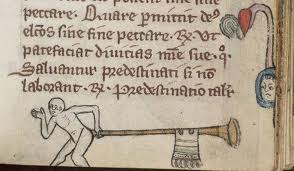 peccare. Quare permittit de⁹
elcos sine fine peccare. R. Ut
patefaciat divitias mīe sue. q.
Salvantur predestinati si nō
laborant. R. Predestinatio tali